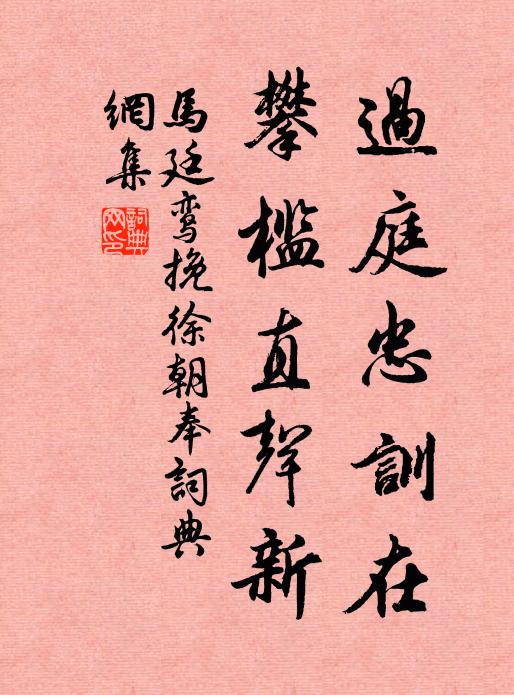 過庭忠訓在
攀檻直聲新
馬廷鸾挽徐朝奉詞典
網集
詞典
网印